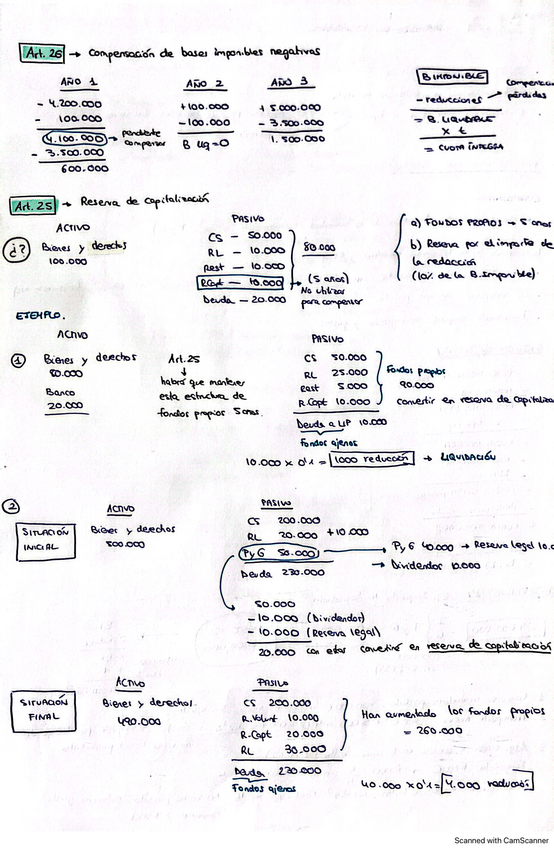 Art. 26 → Compensación de bases imponibles negativas
AÑO 1
- 4.200.000
- 100.000
4.100.000 → pendiente compensar
- 3.500.000
600.000
AÑO 2
+100.000
-100.000
B liq = 0
AÑO 3
+ 5.000.000
- 3.500.000
1.500.000
B IMPONIBLE
- reducciones → compensación pérdidas
= B. LIQUIDABLE
x t
= CUOTA ÍNTEGRA
Art. 25 → Reserva de capitalización
¿?
ACTIVO
Bienes y derechos
100.000
PASIVO
CS - 50.000
RL - 10.000
Rest - 10.000
R.Capt - 10.000
80.000
→ (5 años)
No utilizar
para compensar
Deuda - 20.000
a) FONDOS PROPIOS → 5 años
b) Reserva por el importe de
la redacción
(10% de la B.Imponible)
EJEMPLO.
1
ACTIVO
Bienes y derechos
80.000
Banco
20.000
Art.25
↓
habrá que mantener
esta estructura de
fondos propios 5 años.
PASIVO
CS 50.000
RL 25.000
Rest 5.000
R.Capt 10.000
Fondos propios
90.000
convertir en reserva de capitaliza
Deuda a L/P 10.000
Fondos ajenos
10.000 x 0'1 = 1000 reducción → LIQUIDACIÓN
2
SITUACIÓN
INICIAL
ACTIVO
Bienes y derechos
500.000
PASIVO
CS 200.000
RL 20.000 +10.000
PyG 50.000 → PyG 40.000 → Reserva legal 10.0
→ Dividendos 10.000
Deuda 230.000
50.000
-10.000 (Dividendos)
-10.000 (Reserva legal)
20.000 con estos convertiré en reserva de capitalización
SITUACIÓN
FINAL
ACTIVO
Bienes y derechos
490.000
PASIVO
CS 200.000
R.Volunt 10.000
R.Capt 20.000
RL 30.000
Han aumentado los fondos propios
= 260.000
Deuda 230.000
Fondos ajenos
40.000 x 0'1 = 4.000 reducción
Scanned with CamScanner